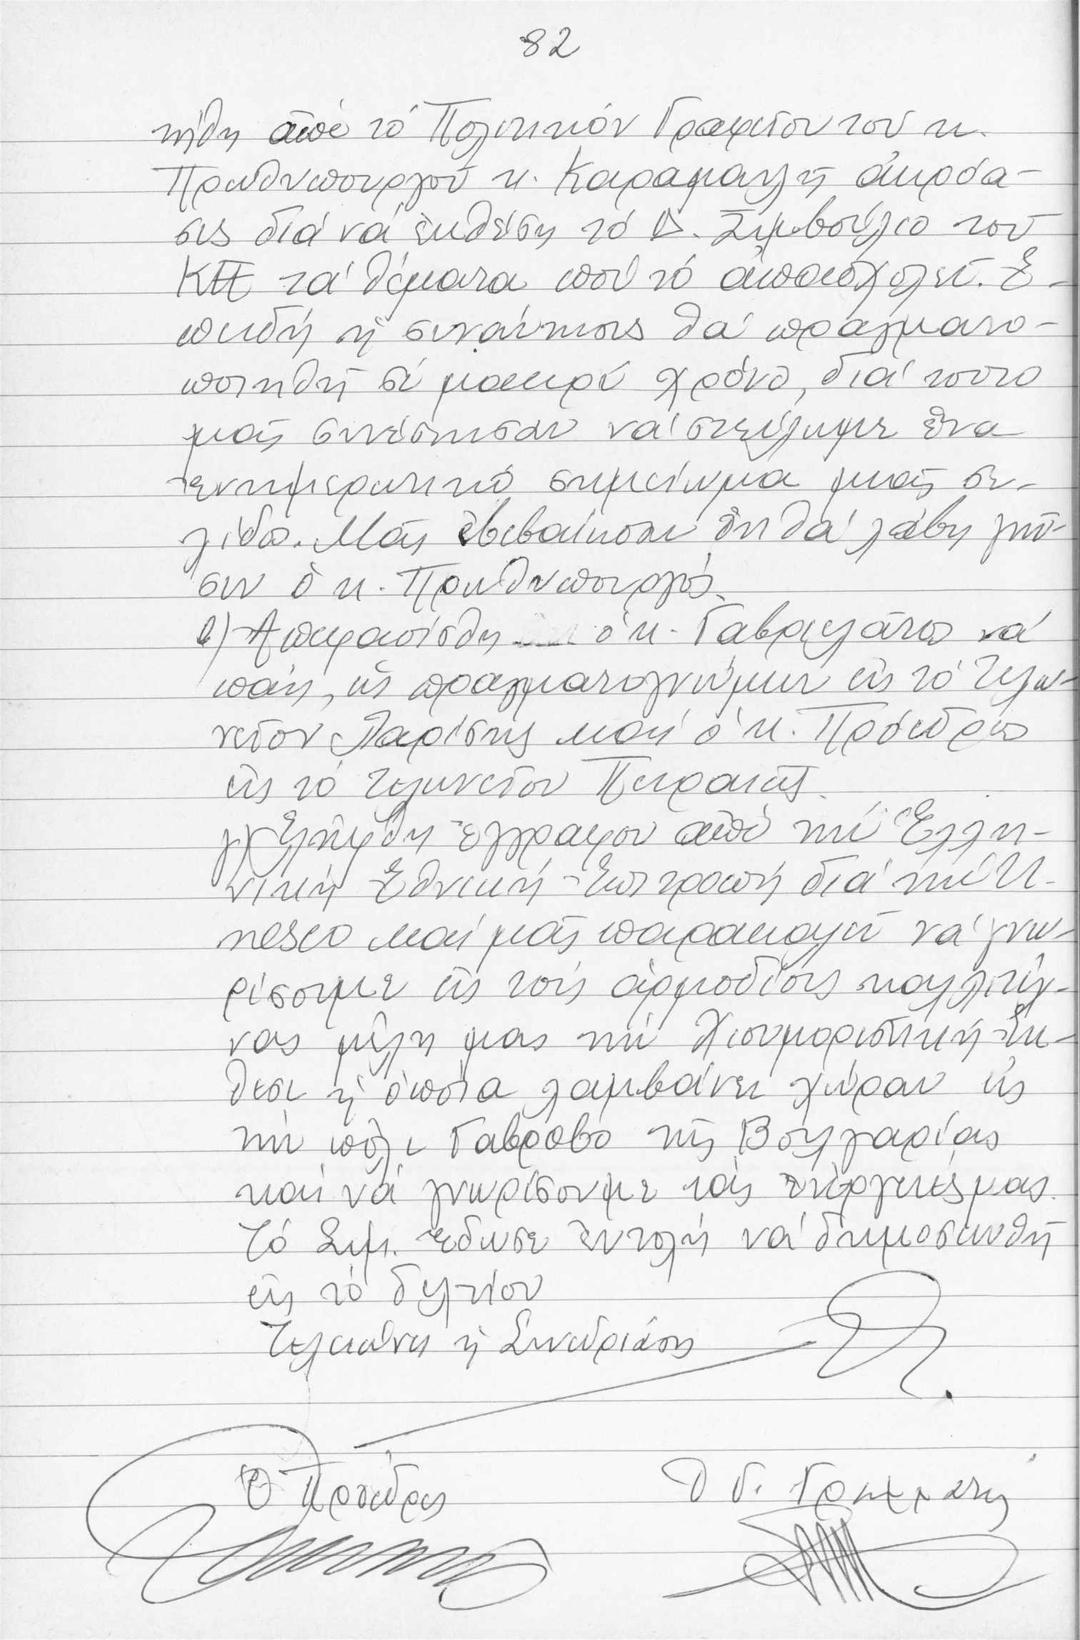 82
τήθη ἀπό τό Πολιτικόν Γραφεῖον τοῦ κ.
Πρωθυπουργοῦ κ. Καραμανλῆ ἀκρόα-
σις διά νά ἐκθέση τό Δ. Συμβούλιο τοῦ
ΚΠΕ τά θέματα πού τό ἀπασχολεῖ. Ἐ-
πειδή ἡ συνάντησις θά πραγματο-
ποιηθῆ σέ μακρύ χρόνο, διά τοῦτο
μᾶς συνέστησαν νά στείλωμε ἕνα
ἐνημερωτικό σημείωμα μιᾶς σε-
λίδος. Μᾶς ἐβεβαίωσαν ὅτι θά λάβη γνῶ-
σιν ὁ κ. Πρωθυπουργός.
β) Ἀπεφασίσθη ὁ κ. Γαβριελάτος νά
πάη, ὡς πραγματογνώμων εἰς τό Τελω-
νεῖον Λαρίσης καί ὁ κ. Πρόεδρος
εἰς τό Τελωνεῖον Πειραιῶς.
γ) Ἐλήφθη ἔγγραφον ἀπό τήν Ἑλλη-
νική Ἐθνική Ἐπιτροπή διά τήν U-
nesco καί μᾶς παρακαλεῖ νά γνω-
ρίσουμε εἰς τούς ἁρμοδίους καλλιτέχ-
νας μέλη μας τήν Χιουμοριστική Ἔκ-
θεσι ἡ ὁποία λαμβάνει χώραν εἰς
τήν πόλι Γαβροβο τῆς Βουλγαρίας
καί νά γνωρίσουμε τάς ἐνέργειές μας.
Τό Συμ. ἔδωσε ἐντολή νά δημοσιευθῆ
εἰς τό δελτίον
Τελειώνει ἡ Συνεδρίασις
Ὁ Πρόεδρος Ὁ Γ. Γραμματεύς